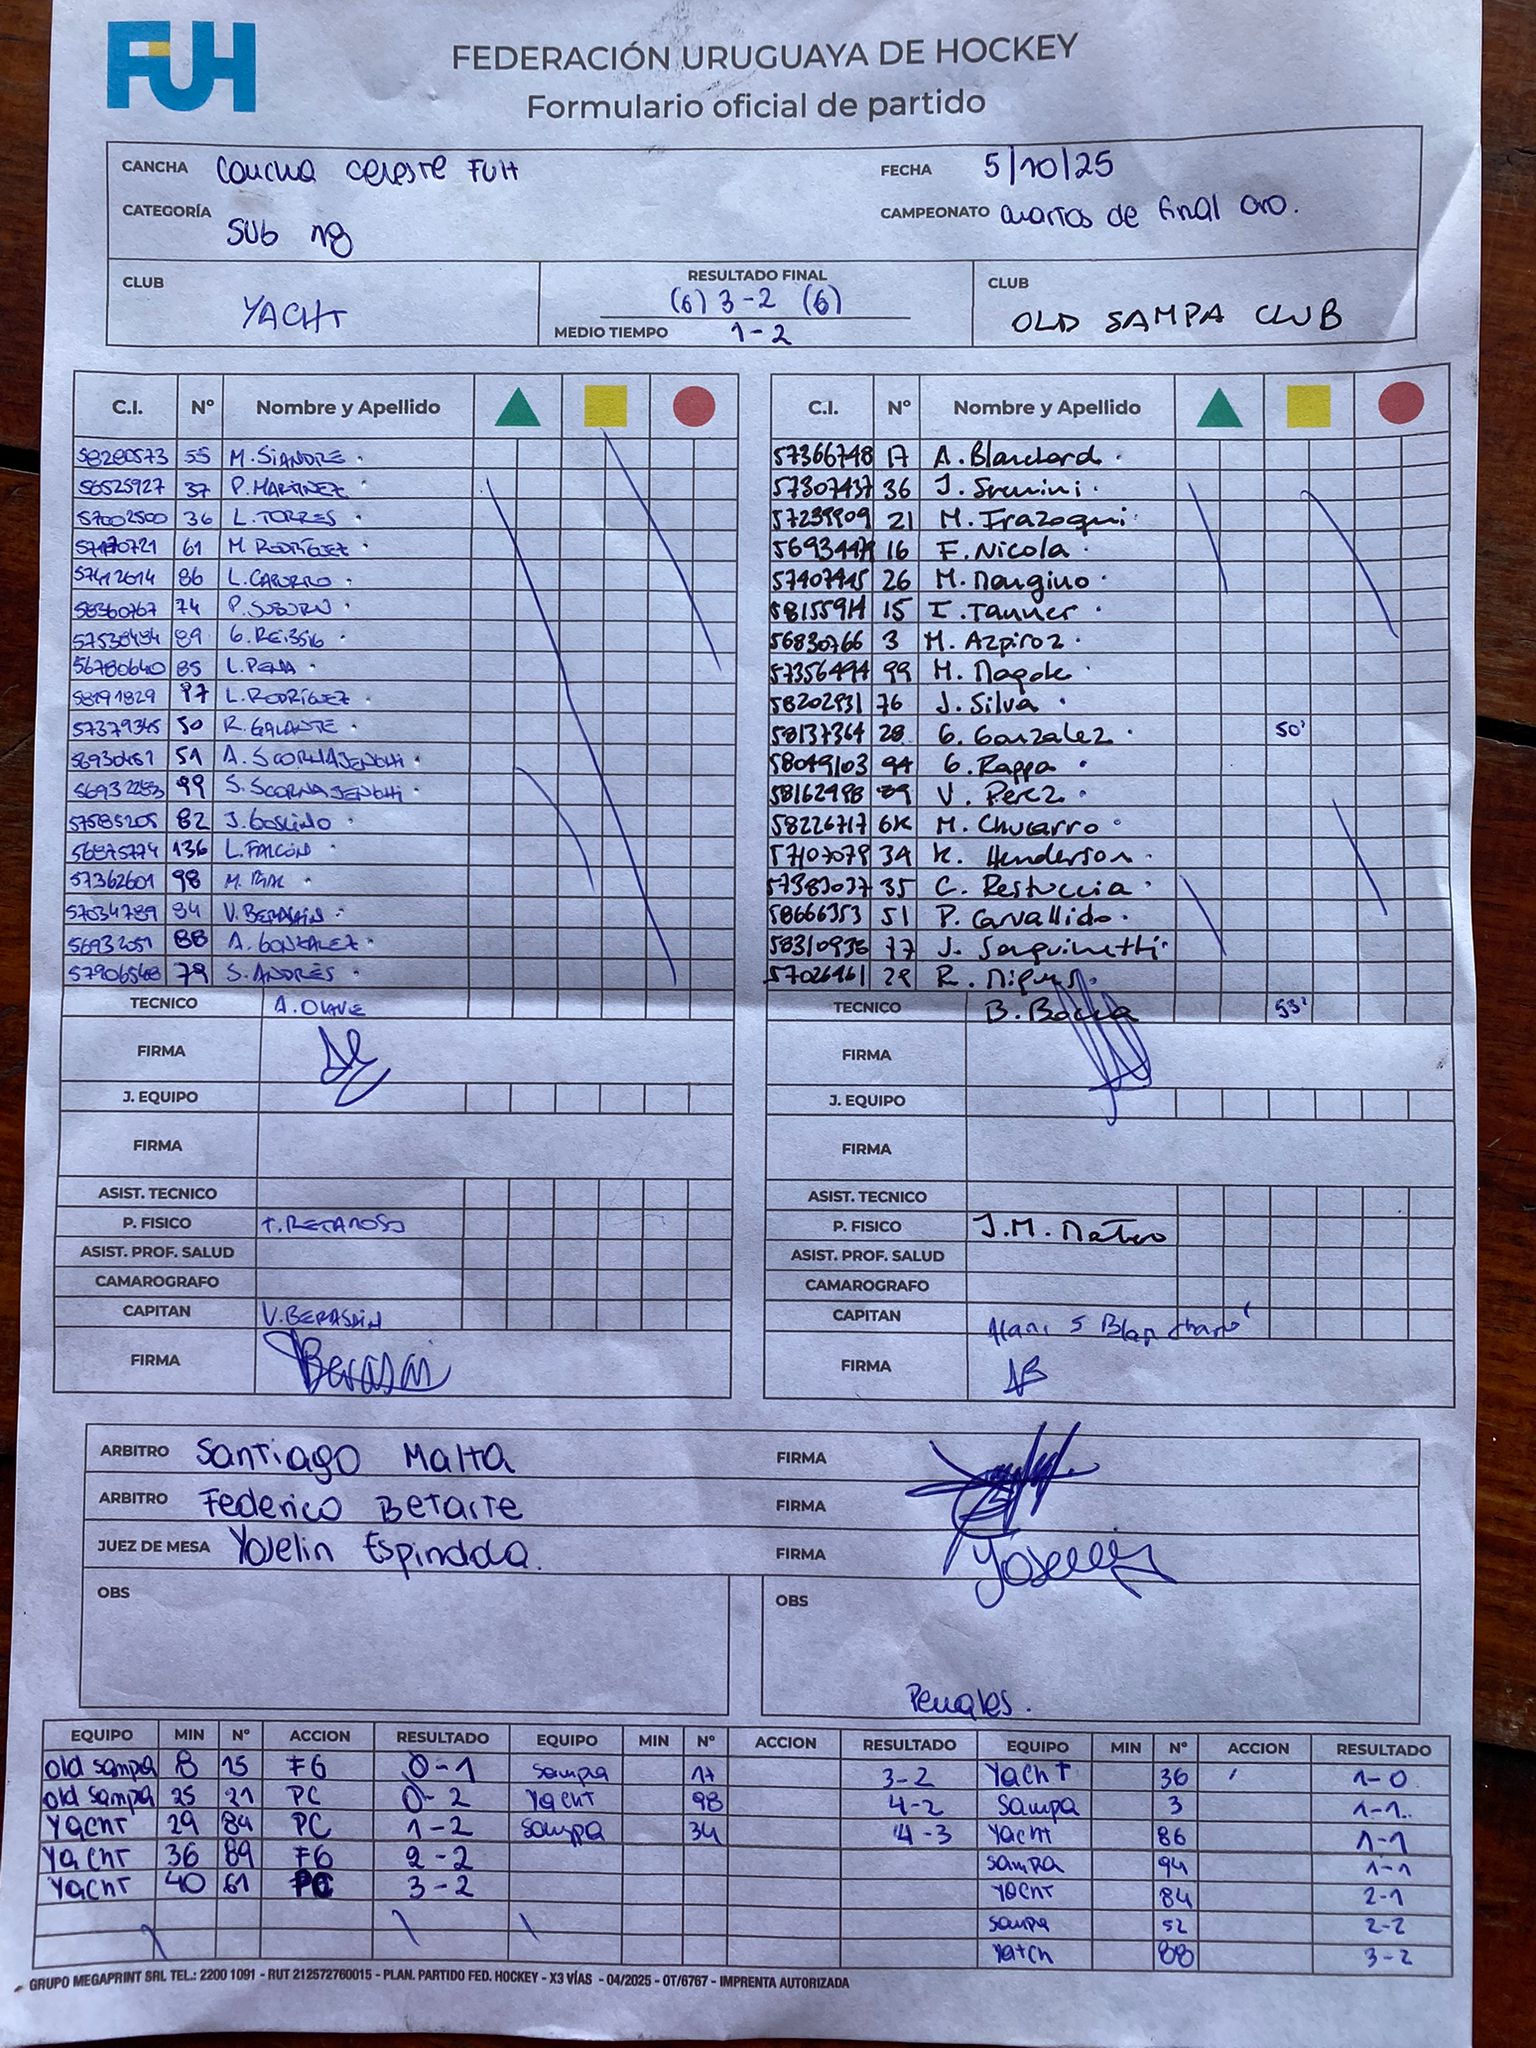 FUH
FEDERACIÓN URUGUAYA DE HOCKEY
Formulario oficial de partido
CANCHA Cancha celeste FUH FECHA 5/10/25
CATEGORÍA Sub 18 CAMPEONATO cuartos de final oro.
CLUB YACHT RESULTADO FINAL (6) 3-2 (6) MEDIO TIEMPO 1-2 CLUB OLD SAMPA CLUB
C.I. Nº Nombre y Apellido C.I. Nº Nombre y Apellido
58280573 55 M. SIANDRE 57366748 17 A. Blanchard
56525927 37 P. MARTINEZ 57307437 36 J.
57002500 36 L. TORRES 57239909 21 M. Irazoqui
61 M. RODRÍGUEZ 16 F. Nicola
57412614 86 L. 26 M. Mangino
58360767 74 P. 15 I. Tanner
57538434 89 G. 56830766 3 M. Azpiroz
56780640 85 L. PENA 57356494 99 M.
58191829 97 L. RODRÍGUEZ 58202931 76 J. Silva
57379345 50 R. GALANTE 58137364 28 G. Gonzalez 50'
58930451 51 A. SCORNAJENGHI 58049103 94 G. Rappa
56932253 99 S. SCORNAJENGHI 58162498 V. Perez
57585205 82 J. GOSLINO 58226717 M. Chucarro
56875774 136 L. FALCÓN 57107079 34 K. Henderson
57362601 98 M. 35 C. Restuccia
57034789 84 V. BERASAIN 58666353 51 P. Carvallido
56932051 88 A. GONZALEZ 58310936 77 J. Sanguinetti
57906548 79 S. ANDRÉS R.
TECNICO A. OLAVE TECNICO B. 53'
FIRMA FIRMA
J. EQUIPO J. EQUIPO
FIRMA FIRMA
ASIST. TECNICO ASIST. TECNICO
P. FISICO T. P. FISICO J.M. Mateo
ASIST. PROF. SALUD ASIST. PROF. SALUD
CAMAROGRAFO CAMAROGRAFO
CAPITAN V. BERASAIN CAPITAN
FIRMA Berasain FIRMA AB
ARBITRO Santiago Malta FIRMA
ARBITRO Federico Betarte FIRMA
JUEZ DE MESA Yoselin Espindola. FIRMA Yoselin
OBS OBS
Penales.
EQUIPO MIN Nº ACCION RESULTADO EQUIPO MIN Nº ACCION RESULTADO EQUIPO MIN Nº ACCION RESULTADO
old sampa 8 15 FG 0-1 sampa 17 3-2 Yacht 36 1-0
old sampa 25 21 PC 0-2 Yacht 98 4-2 Sampa 3 1-1.
Yacht 29 84 PC 1-2 sampa 34 4-3 Yacht 86 1-1
Yacht 36 89 FG 2-2 sampa 94 1-1
Yacht 40 61 PC 3-2 Yacht 84 2-1
sampa 52 2-2
Yatch 88 3-2
GRUPO MEGAPRINT SRL TEL.: 2200 1091 - RUT 212572760015 - PLAN. PARTIDO FED. HOCKEY - X3 VÍAS - 04/2025 - OT/6767 - IMPRENTA AUTORIZADA